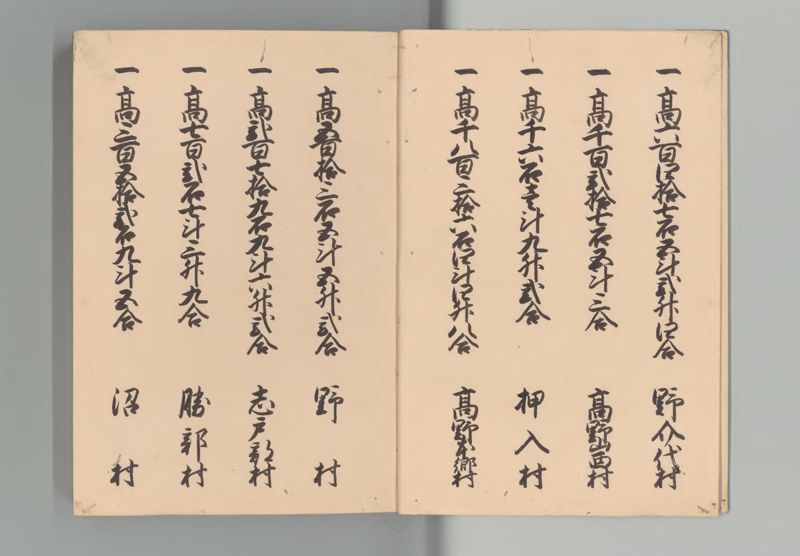 一高六百四拾七石五斗弐升四合 野介代村
一高千百弐拾七石五斗三合 高野山西村
一高千六石壱斗九升弐合 押入村
一高千八百三拾六石四斗四升八合 高野本郷村
一高五百拾三石五斗五升弐合 野村
一高弐百七拾九石九斗六升弐合 志戸部村
一高七百弐石七斗三升九合 勝部村
一高三百五拾弐石九斗五合 沼村